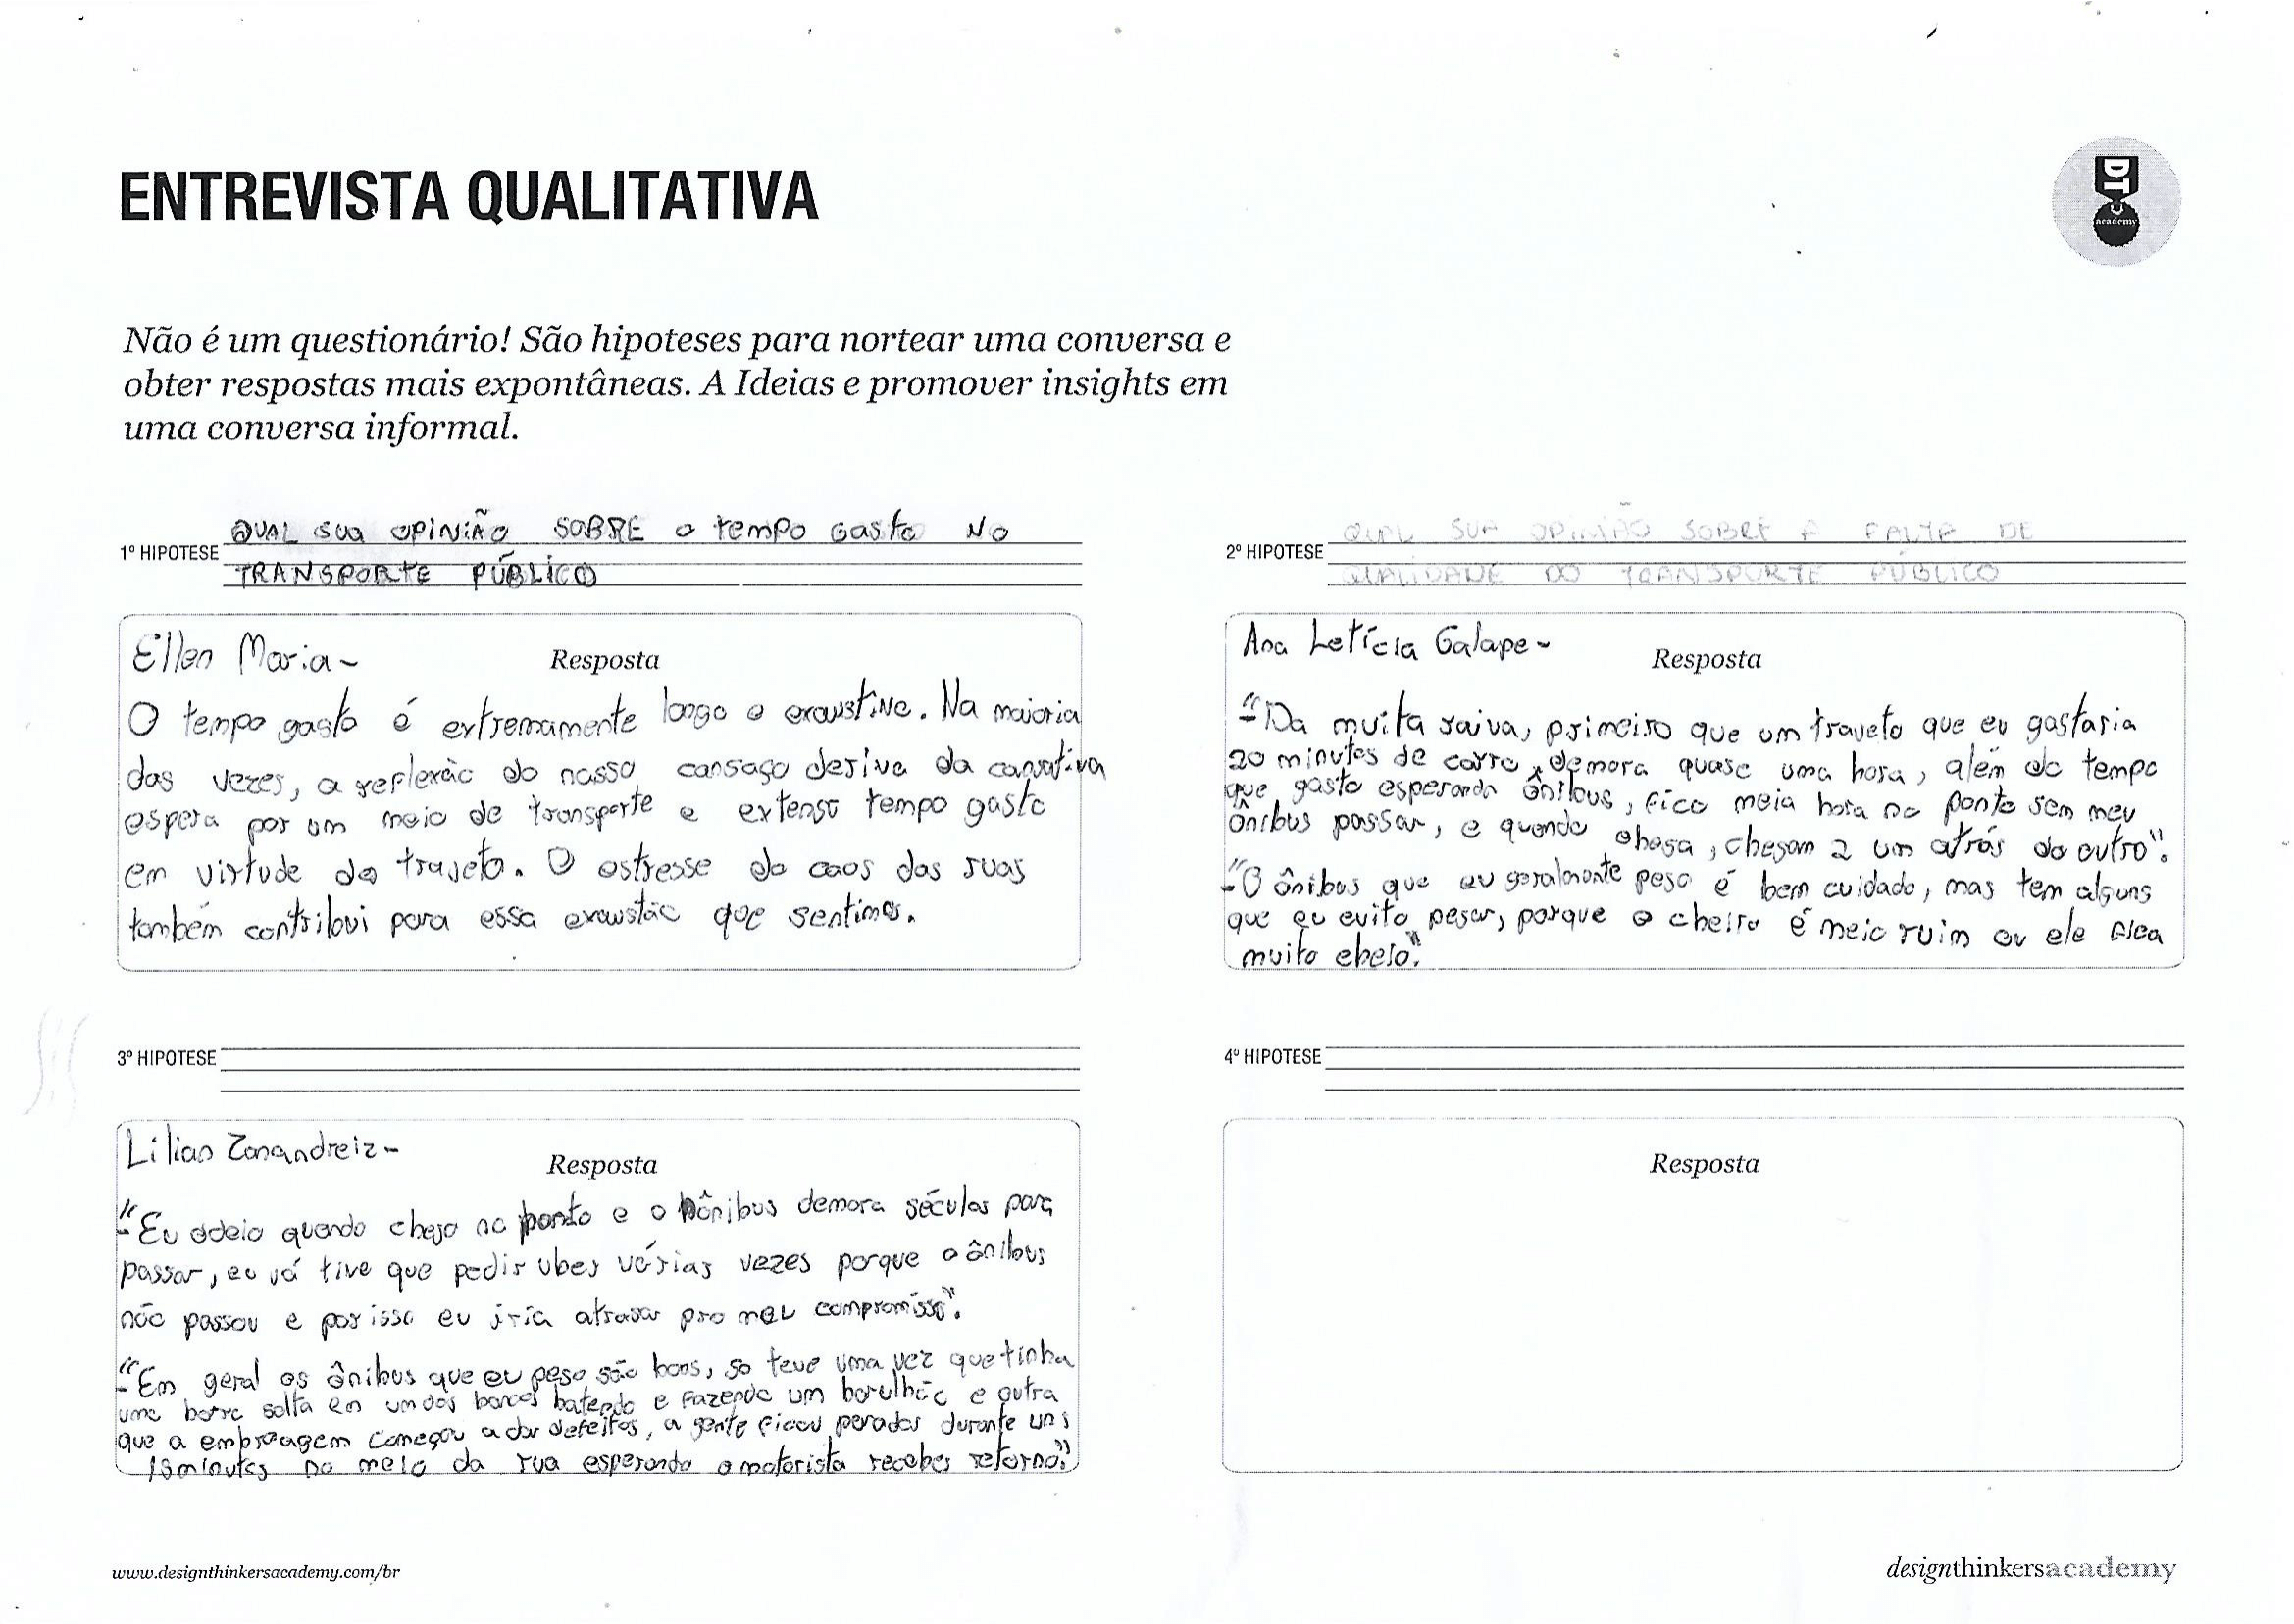 ENTREVISTA QUALITATIVA
DT
academy
Não é um questionário! São hipoteses para nortear uma conversa e
obter respostas mais expontâneas. A Ideias e promover insights em
uma conversa informal.
1º HIPOTESE QUAL SUA OPINIÃO SOBRE O TEMPO GASTO NO
TRANSPORTE PÚBLICO
Ellen Maria -
Resposta
O tempo gasto é extremamente longo e exaustivo. Na maioria
das vezes, a reflexão do nosso cansaço deriva da cansativa
espera por um meio de transporte e extenso tempo gasto
em virtude do trajeto. O estresse do caos das ruas
também contribui para essa exaustão que sentimos.
2º HIPOTESE QUAL SUA OPINIÃO SOBRE A FALTA DE
QUALIDADE DO TRANSPORTE PÚBLICO
Ana Letícia Galape -
Resposta
"Da muita raiva, primeiro que um trajeto que eu gastaria
20 minutos de carro, demora quase uma hora, além do tempo
que gasto esperando ônibus, fico meia hora no ponto sem meu
ônibus passar, e quando chega, chegam 2 um atrás do outro".
"O ônibus que eu geralmente pego é bem cuidado, mas tem alguns
que eu evito pegar, porque o cheiro é meio ruim ou ele fica
muito cheio".
3º HIPOTESE
Lilian -
Resposta
"Eu odeio quando chego no ponto e o ônibus demora séculos para
passar, eu já tive que pedir uber várias vezes porque o ônibus
não passou e por isso eu iria atrasar pro meu compromisso".
"Em geral os ônibus que eu pego são bons, so teve uma vez que tinha
uma barra solta em um dos bancos batendo e fazendo um barulhão e outra
que a embreagem começou a dar defeitos, a gente ficou parados durante uns
minutos no meio da rua esperando o motorista receber retorno."
4º HIPOTESE
Resposta
www.designthinkersacademy.com/br
designthinkersacademy